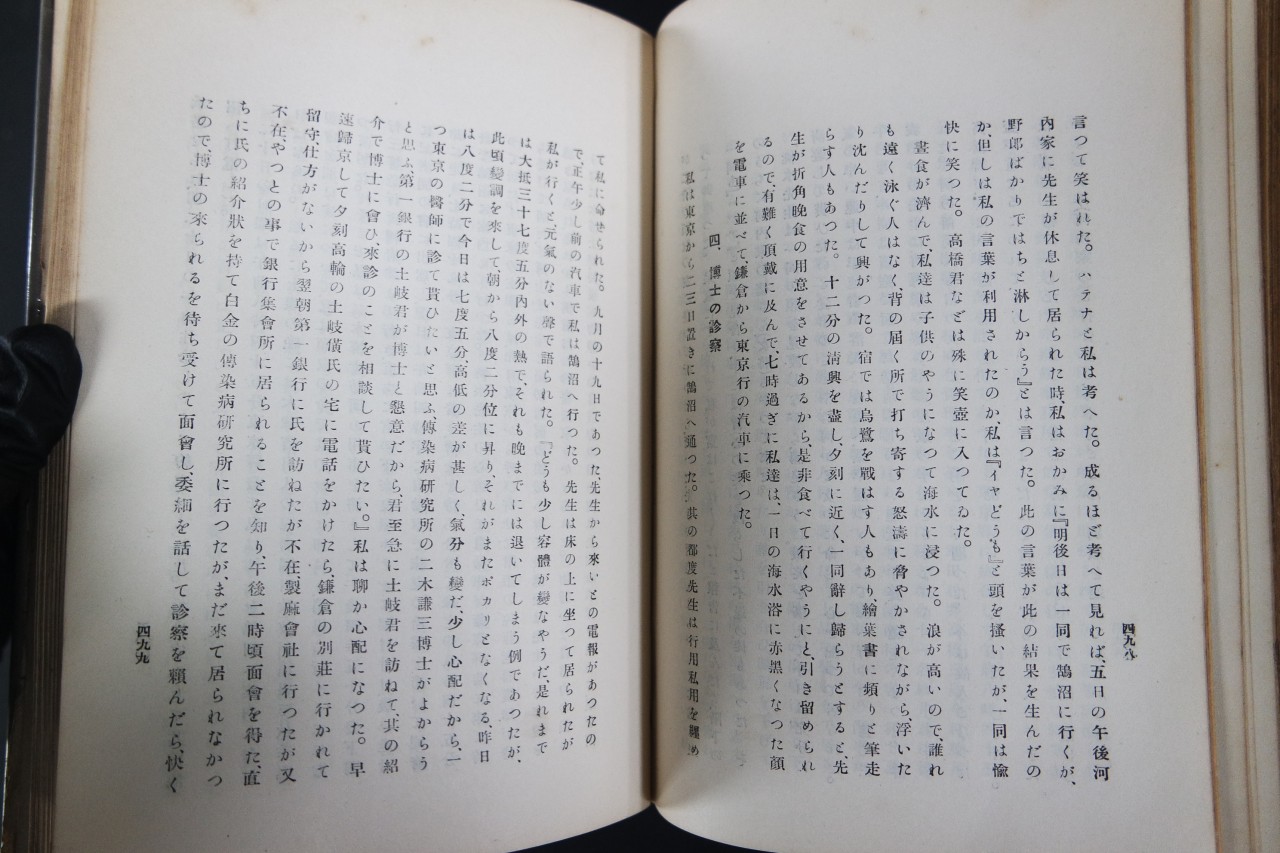 言つて笑はれた。ハテナと私は考へた。成るほど考へて見れば、五日の午後河
内家に先生が休息して居られた時、私はおかみに『明後日は一同で鵠沼に行くが、
野郎ばかりではちと淋しからう』とは言つた。此の言葉が此の結果を生んだの
か、但しは私の言葉が利用されたのか、私は『イヤどうも』と頭を掻いたが、一同は愉
快に笑つた。高橋君などは殊に笑壺に入つてゐた。
晝食が濟んで、私達は子供のやうになつて海水に浸つた。浪が高いので、誰れ
も遠く泳ぐ人はなく、背の屆く所で打ち寄する怒濤に脅やかされながら、浮いた
り沈んだりして興がつた。宿では烏鷺を戰はす人もあり、繪葉書に頻りと筆走
らす人もあつた。十二分の淸興を盡し、夕刻に近く、一同辭し歸らうとすると、先
生が折角晩食の用意をさせてあるから、是非食べて行くやうにと、引き留められ
るので、有難く頂戴に及んで、七時過ぎに私達は、一日の海水浴に赤黑くなつた顏
を電車に並べて、鎌倉から東京行の汽車に乘つた。
四、博士の診察
私は東京から二三日置きに鵠沼へ通つた。其の都度先生は行用私用を纒め
四九八
て私に命ぜられた。九月の十九日であつた先生から來いとの電報があつたの
で、正午少し前の汽車で私は鵠沼へ行つた。先生は床の上に坐つて居られたが
私が行くと、元氣のない聲で語られた。『どうも少し容體が變なやうだ、是れまで
は大抵三十七度五分內外の熱で、それも晩までには退いてしまう例であつたが、
此頃變調を來して、朝から八度二分位に昇り、それがまたポカリとなくなる、昨日
は八度二分で今日は七度五分高低の差が甚しく、氣分も變だ、少し心配だから、一
つ東京の醫師に診て貰ひたいと思ふ、傳染病硏究所の二木謙三博士がよからう
と思ふ、第一銀行の土岐君が博士と懇意だから、君至急に土岐君を訪ねて、其の紹
介で博士に會ひ、來診のことを相談して貰ひたい。』私は聊か心配になつた。早
速歸京して夕刻高輪の土岐僙氏の宅に電話をかけたら、鎌倉の別莊に行かれて
留守、仕方がないから翌朝第一銀行に氏を訪ねたが不在、製麻會社に行つたが又
不在、やつとの事で銀行集會所に居られることを知り、午後二時頃面會を得た、直
ちに氏の紹介狀を持て白金の傳染病硏究所に行つたが、まだ來て居られなかつ
たので、博士の來られるを待ち受けて面會し、委細を話して診察を賴んだら、快く
四九九